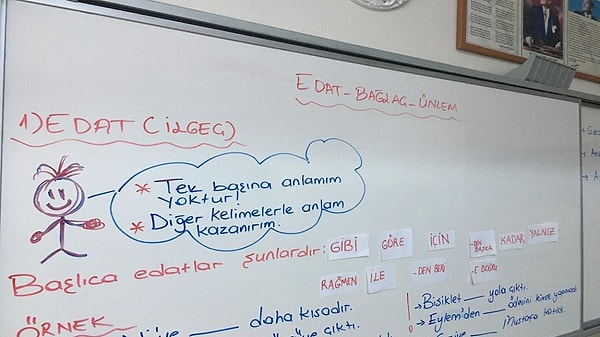 EDAT-BAĞLAÇ-ÜNLEM
1) EDAT (İLGEÇ)
* Tek başına anlamım
yoktur!
* Diğer kelimelerle anlam
kazanırım.
Başlıca edatlar şunlardır: GİBİ GÖRE İÇİN -DEN BAŞKA KADAR YALNIZ
RAĞMEN İLE -DEN BERİ -E DOĞRU
ÖRNEK
daha kısadır.
çıktı.
! - Bisiklet ___ yola çıktı.
- Eylem'den ___ ödevini kimse yapmadı
Mustafa katıldı.